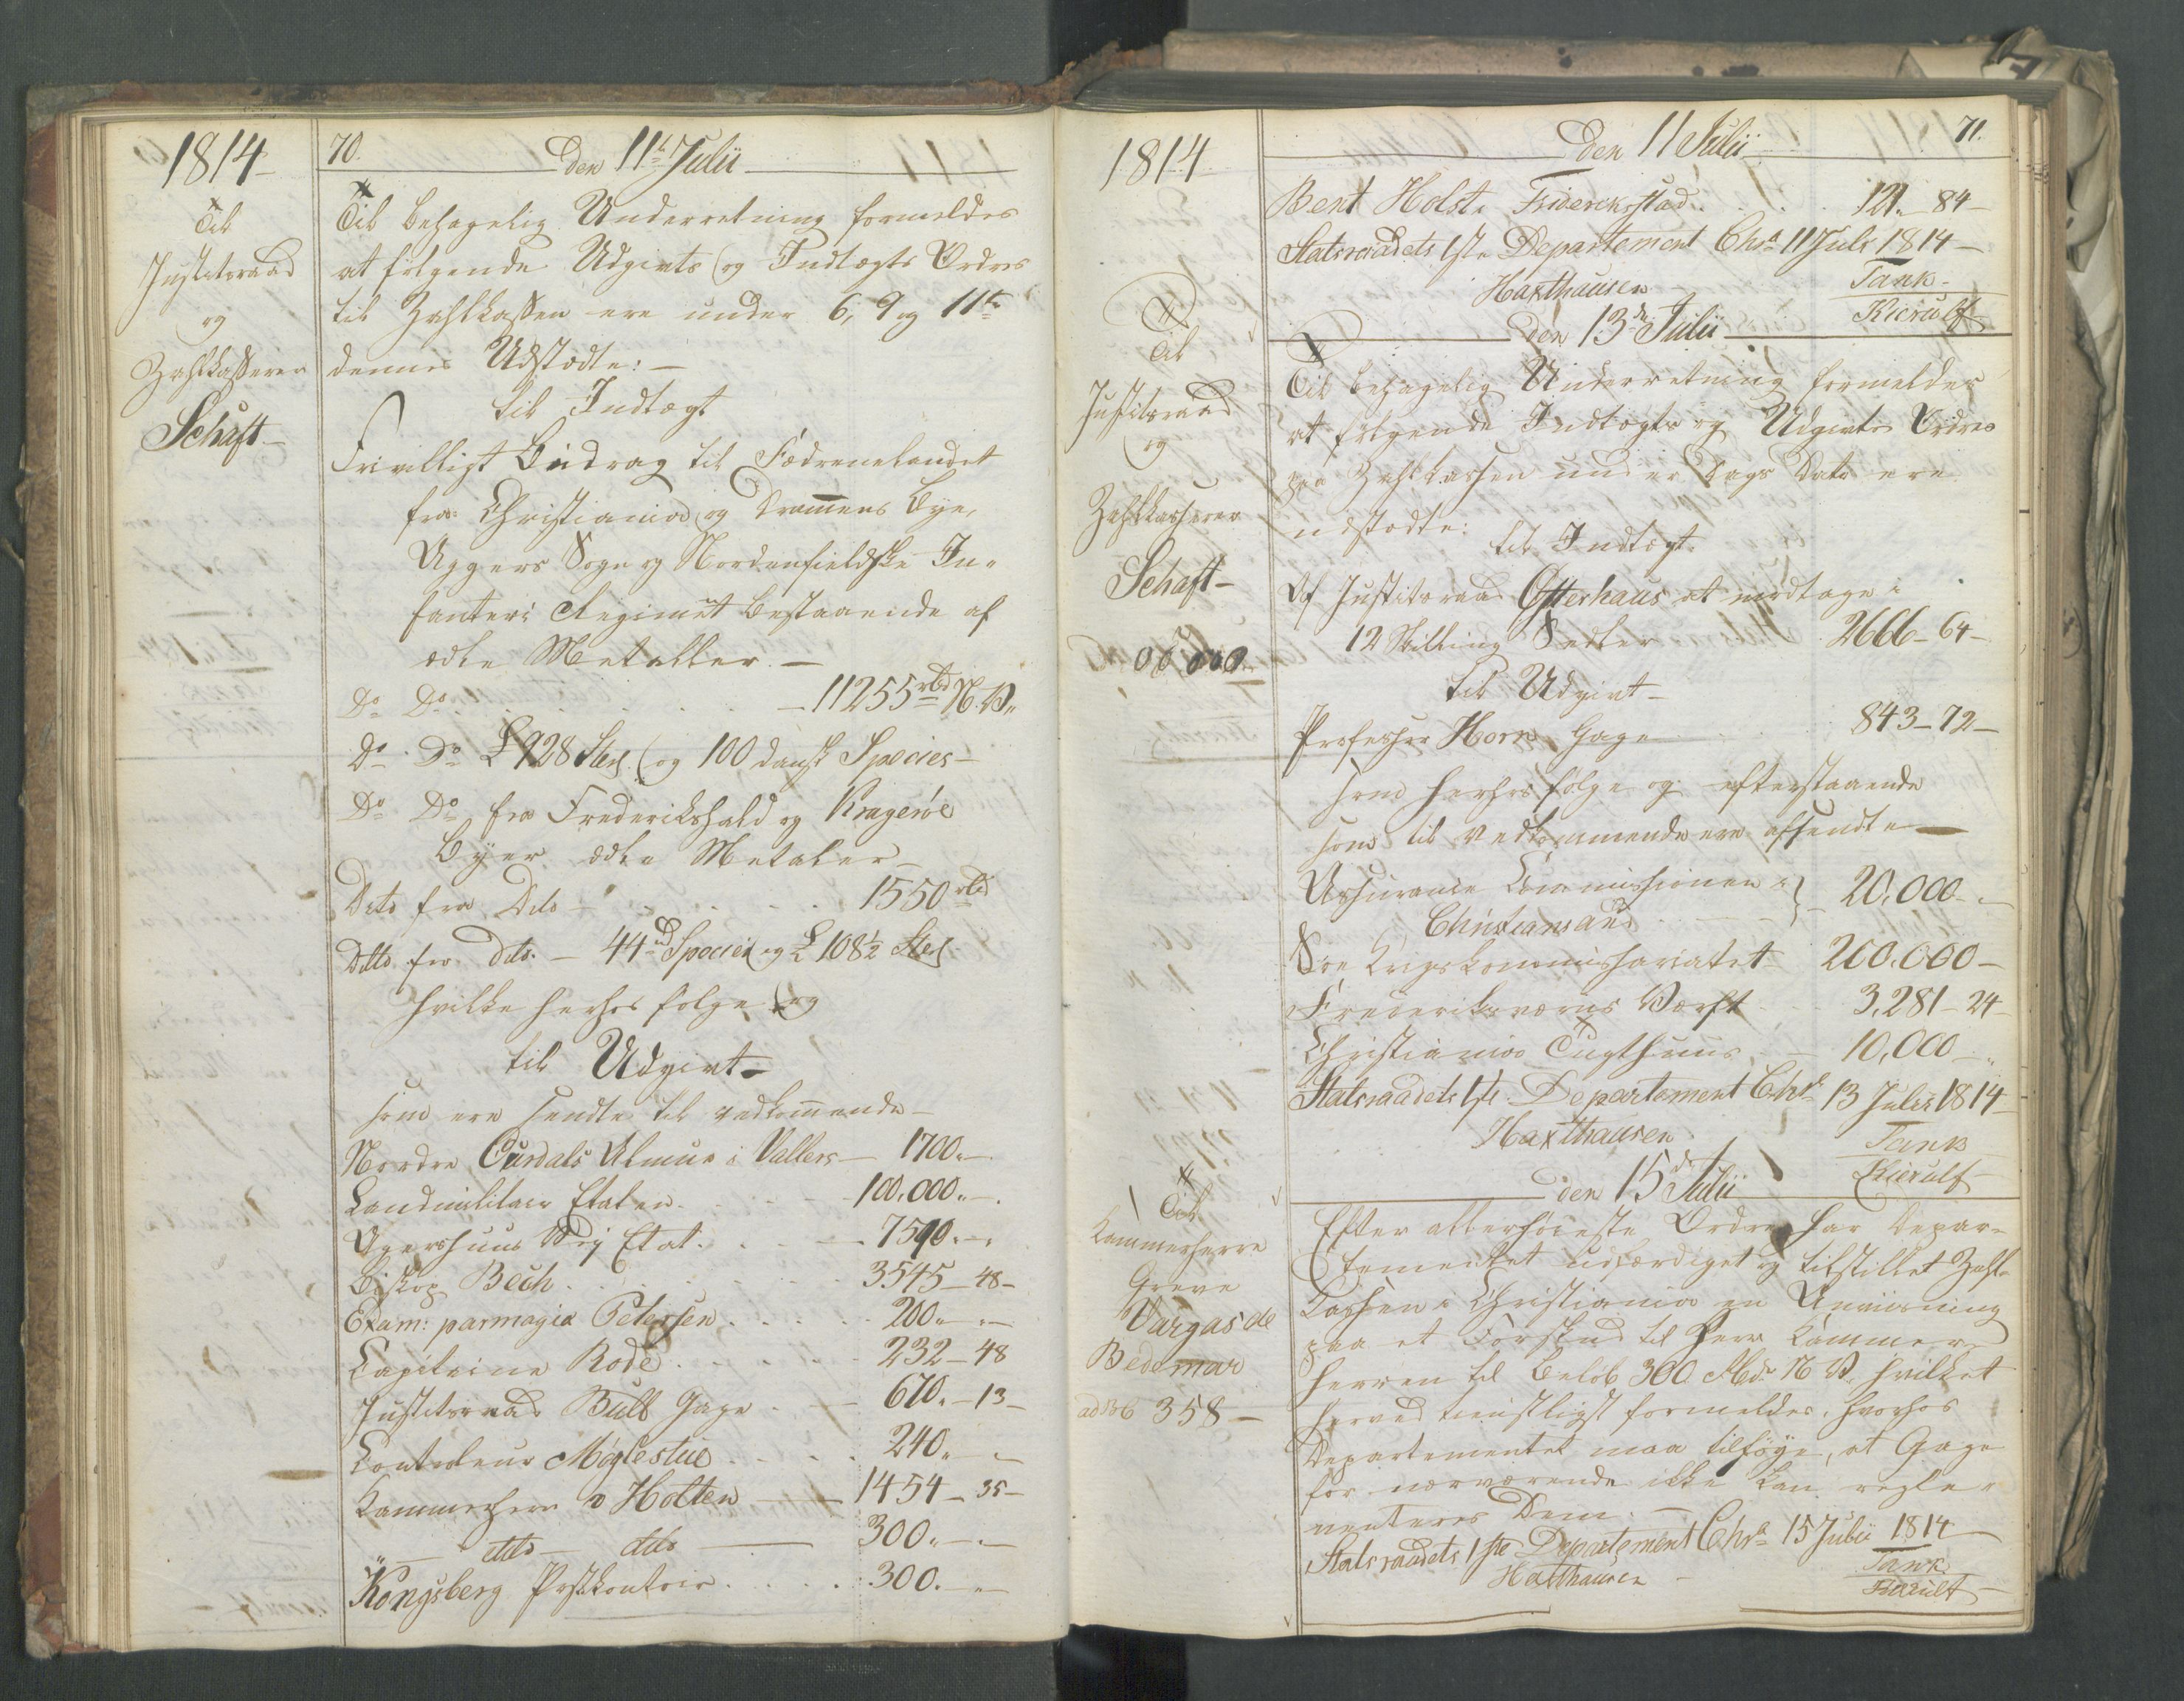 1814
Til
Justitsraad
og
Zahlkasserer
Schaft
70.
den 11te Julii
Til behagelig Underretning formeldes
at følgende Udgivts og Indtægts Ordres
til Zahlkassen ere under 6, 9 og 11te
dennes Udstædte: —
til Indtægt
Frivilligt Bidrag til Fædrenelandet
fra Christiania og Dramens Bye,
Aggers Sogn og Nordenfieldske In-
fanteri Regiment bestaaende af
ædle Metaller. —
Do Do . . . . — 11255 rbd N.V.
Do Do £928 Sterl og 100 dansk Species —
Do Do fra Frederikshald og Kragerøe
Byer ædle Metaler —
Dito fra Dito — . . . 1550 rbd
Ditto fra dito. — 44 Species og £ 108½ Sterl
hvilke herhos følge, og
til Udgivt —
som ere sendte til vedkommende —
Nordre Aurdals Almue i Vallers — 1700. —
Landmilitair Etaten . . . 100,000. —
Agershuus Etat . . . 7590. —
Biskop Bech . . . 3545 — 48 —
Exam: parmagia Petersen . . . 200. —
Capitaine Rode . . . 232 — 48
Justitsraad Bull Gage . . — 670. — 13 —
Controleur Møglestue . . . 240. —
Kammerherr v Holten — 1454 — 35 —
" — dito — dito — 300. —
Kongsberg Postkontoir . . . 300. —
1814
71.
den 11 Julii
Bent Holst i Friderikstad . . . 121. — 84 —
Statsraadets 1ste Departement Chra 11 Juli 1814 —
Haxthausen
Tank
Kierulf
den 13de Julii
Til
Justitsraad
og
Zahlkasserer
Schaft —
Til behagelig Underretning formeldes
at følgende Indtægts og Udgivts Ordres
paa Zahlkassen under Dags Dato ere
udstædte:
til Indtægt.
Af Justitsraad Osterhaus at modtage i
12 Skilling Sedler 2666 — 64 —
til Udgivt —
Professor Horn Gage . . . 843 — 72 —
som herhos følge og efterstaaende
som til vedkommende ere afsendte —
Assurance Commissionen i
Christiansand . . . 20,000 —
Søe Krigskommissariatet 200,000 —
Frederiksværns Værft . . 3,281 — 24
Christianias Tugthuus — 10,000 —
Statsraadets 1ste Departement Chra 13 Julii 1814
Haxthausen
Tank
Kierulf
den 15de Julii
Til
Kammerherre
Greve
Vargas de
Bedemar
358 —
Efter allerhøieste Ordre har Depar-
tementet udfærdiget og tilstillet Zahl-
kassen i Christiania en Anviisning
paa et Forskud til Herr Kammer-
herren til Beløb 300 Rbdr N.V. hvilket
herved tienstligst formeldes, hvorhos
Departementet maa tilføye, at Gage
for nærværende ikke kan regle-
menteres Dem. —
Statsraadets 1ste Departement Chra 15 Julii 1814
Haxthausen
Tank
Kierulf